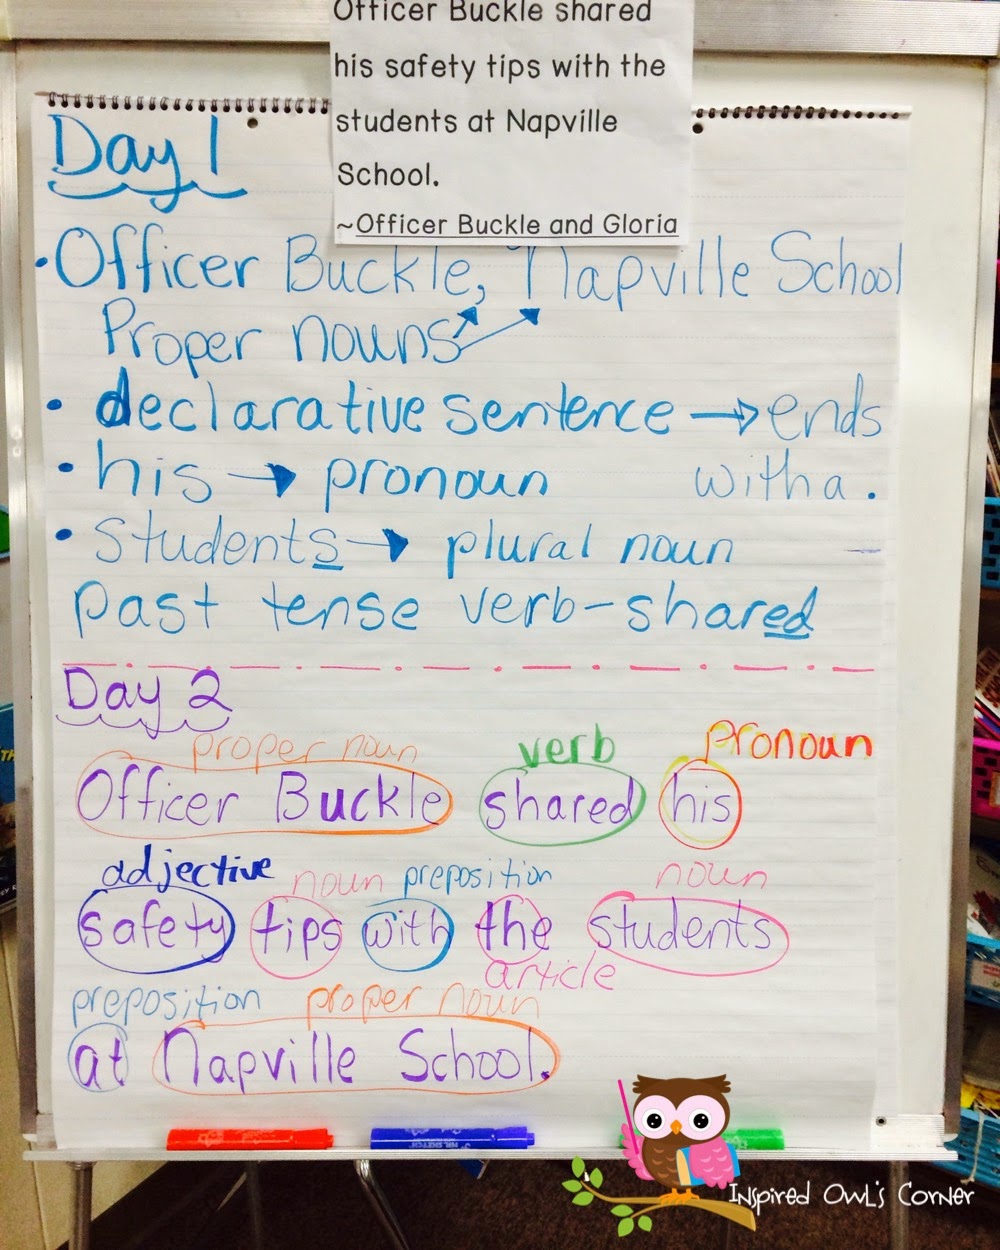 Officer Buckle shared
his safety tips with the
students at Napville
School.
~Officer Buckle and Gloria
Day 1
• Officer Buckle, Napville School
Proper nouns
• declarative sentence → ends
with a .
• his → pronoun
• students → plural noun
Past tense verb-shared
Day 2
proper noun verb pronoun
Officer Buckle shared his
adjective noun preposition noun
safety tips with the students
article
preposition proper noun
at Napville School.
MR. SKETCH
Inspired Owl's Corner